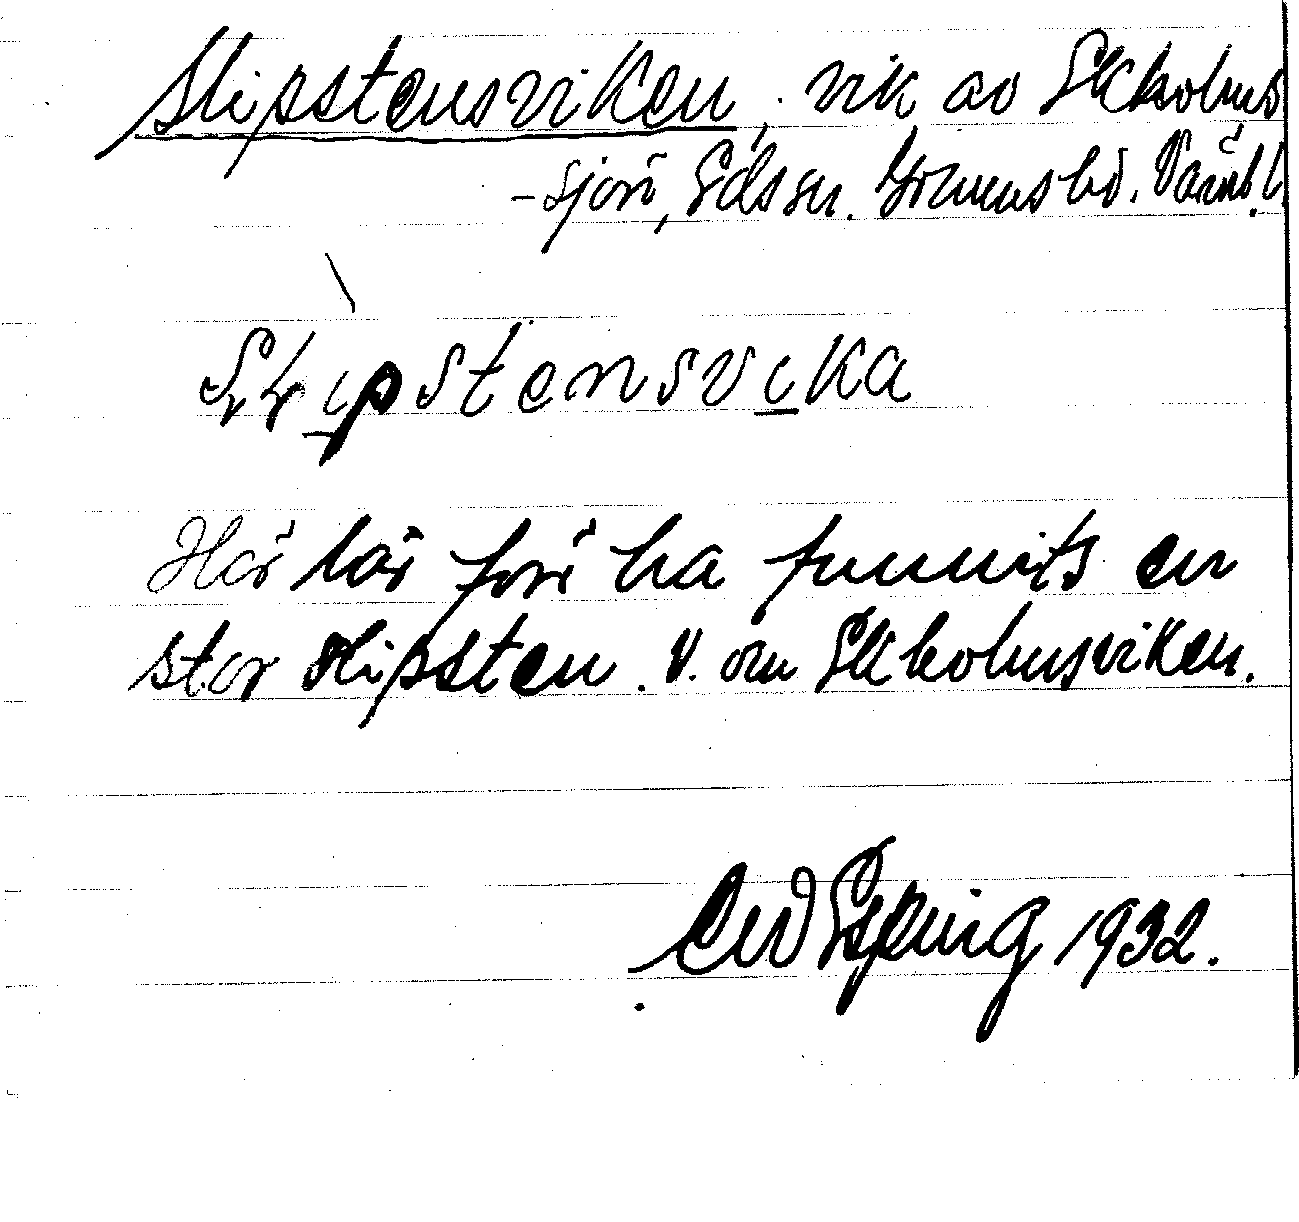 Slipstensviken, vik av Ekholms
-sjön, Eds sn. Grums hd. Värml.
Slipstensvika
Här lär förr ha funnits en
stor slipsten. V. om Ekholmsviken.
1932.